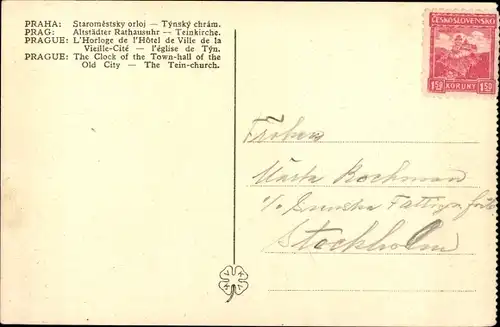 PRAHA: Staroměstsky orloj — Týnský chrám.
PRAG: Altstädter Rathausuhr — Teinkirche.
PRAGUE: L'Horloge de l'Hôtel de Ville de la
Vieille-Cité — l'église de Týn.
PRAGUE: The Clock of the Town-hall of the
Old City — The Tein-church.
ČESKOSLOVENSKO
1.50 KORUNY 1.50
Märta Rochman
c/o Svenska
Stockholm